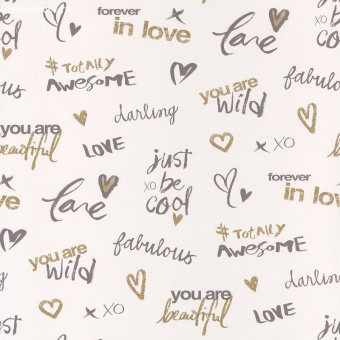 forever
in love
love
xo
be
cool
#TOTALLY
AWESOME
you are
wild
fabulous
darling
you are
beautiful
LOVE
just
xo be
cool
xo
forever
in love
love
love
#TOTALLY
AWESOME
fabulous
you are
wild
darling
xo
you are
beautiful
LOVE
just
just